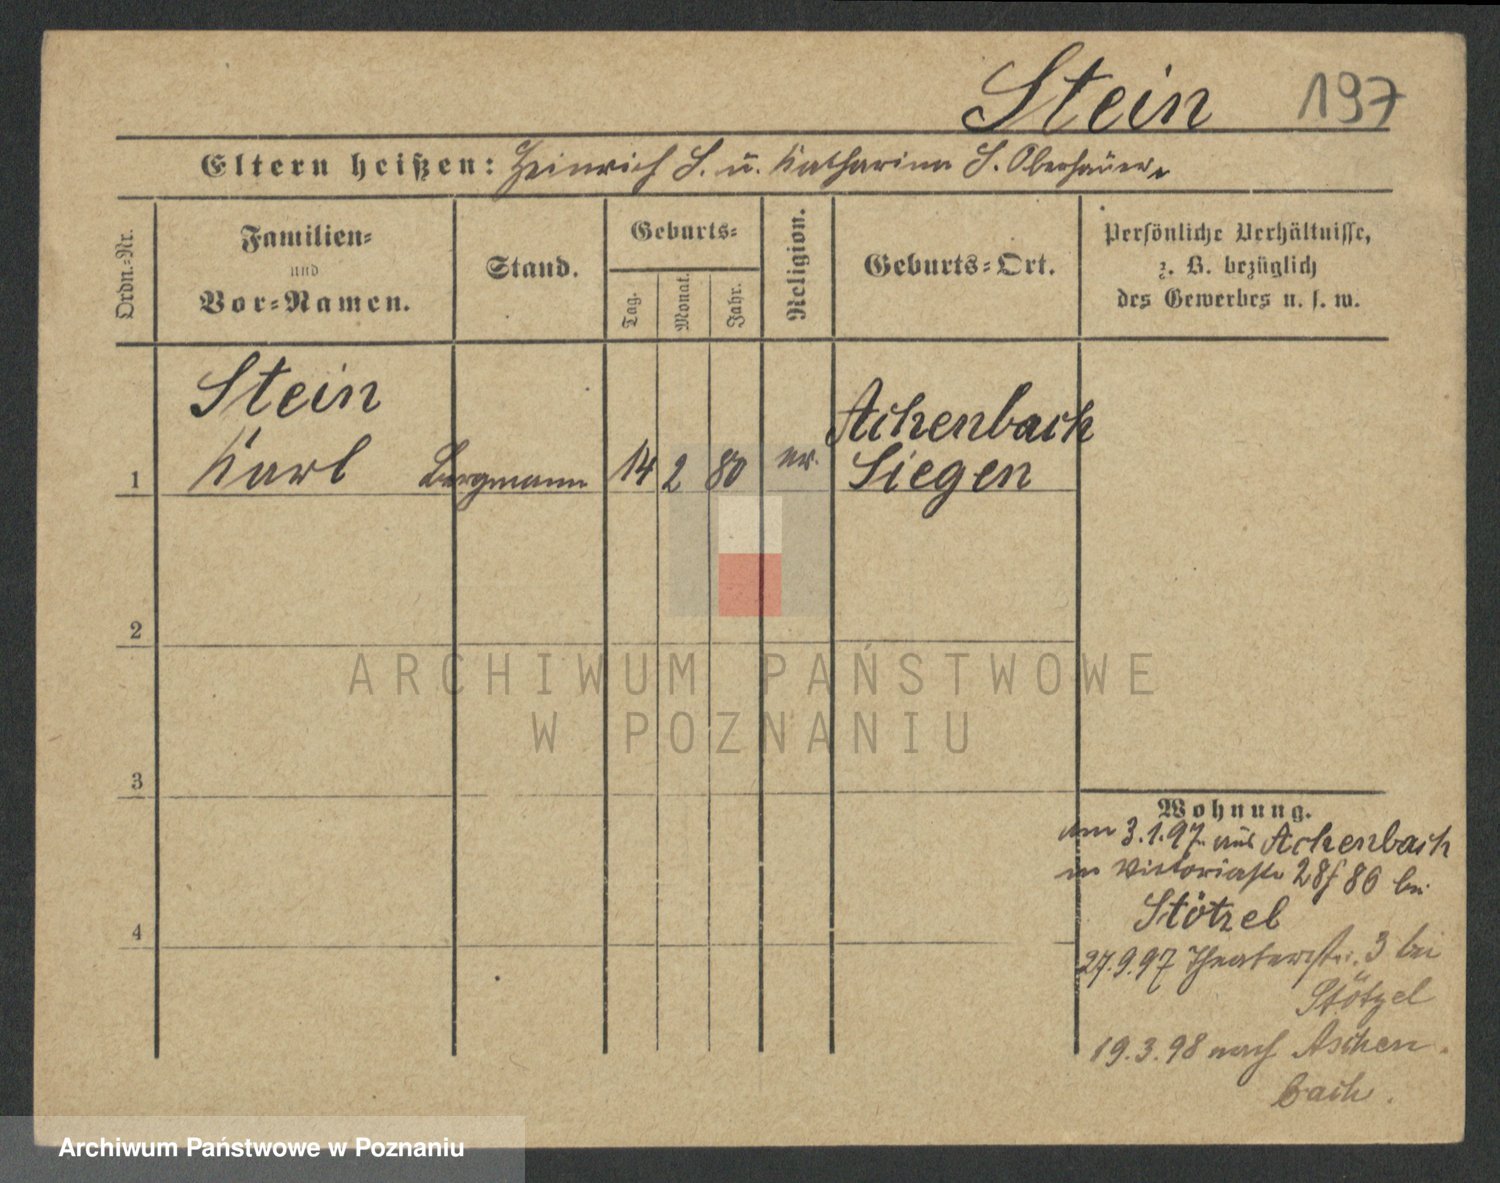 Stein 197
Eltern heißen: Heinrich S. u. Katharina S.
Ordn.-Nr.
Familien-
und
Vor-Namen.
Stand.
Geburts-
Tag.
Monat.
Jahr.
Religion.
Geburts-Ort.
Persönliche Verhältnisse,
z. B. bezüglich
des Gewerbes u. s. w.
Stein
Achenbach
1 Karl Bergmann 14 2 80 ev. Siegen
2
ARCHIWUM PAŃSTWOWE
W POZNANIU
3
Wohnung.
am 3.1.97 aus Achenbach
in Victoriastr 28f 86 bei
Stötzel
4
27.9.97 Theaterstr. 3 bei
Stötzel
19.3.98 nach Aschen
bach.
Archiwum Państwowe w Poznaniu